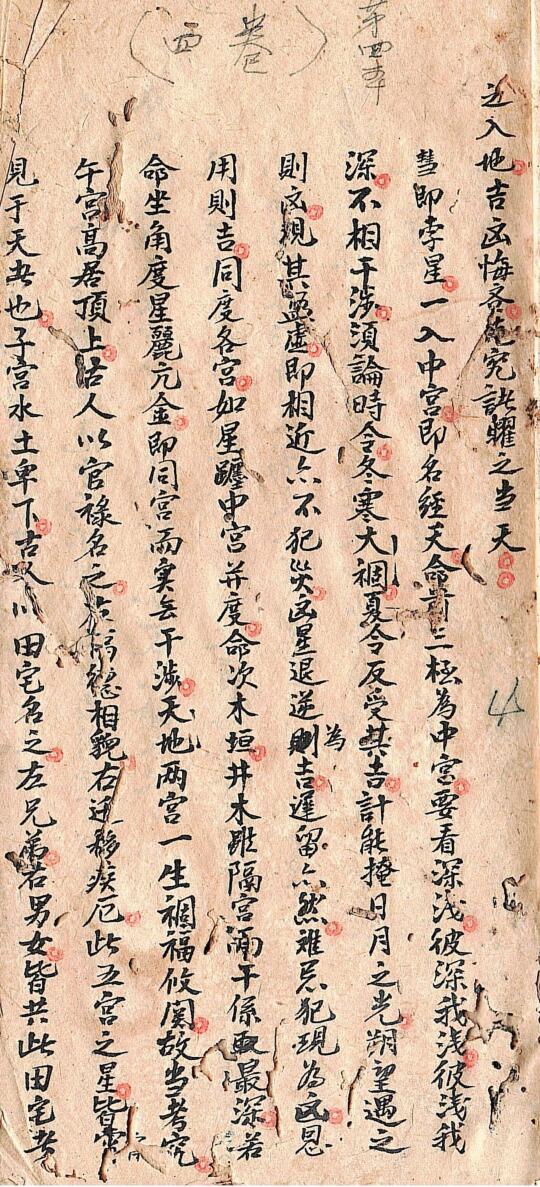 第四本
(卷四)
之入地吉凶悔吝先究諸曜之当天
彗即孛星一入中宮即名經天命前三極為中宮要看深浅彼深我浅彼浅我
深不相干涉須論時令冬寒大禍夏令反受其吉計能掩日月之光朔望遇之
則凶視其盈虛即相近亦不犯災凶星退逆則為吉遲留亦然雖忌犯現為凶恩
用則吉同度各宮如星躔中宮并度命次木垣井木雖隔宮而干係最深若
命坐角度星麗亢金即同宮而实无干涉天地两宮一生禍福攸関故当考究
午宮高居頂上古人以官祿名之左福德相貌右迁移疾厄此五宮之星皆常
見于天者也子宮水土卑下古人以田宅名之左兄弟右男女皆共此田宅者